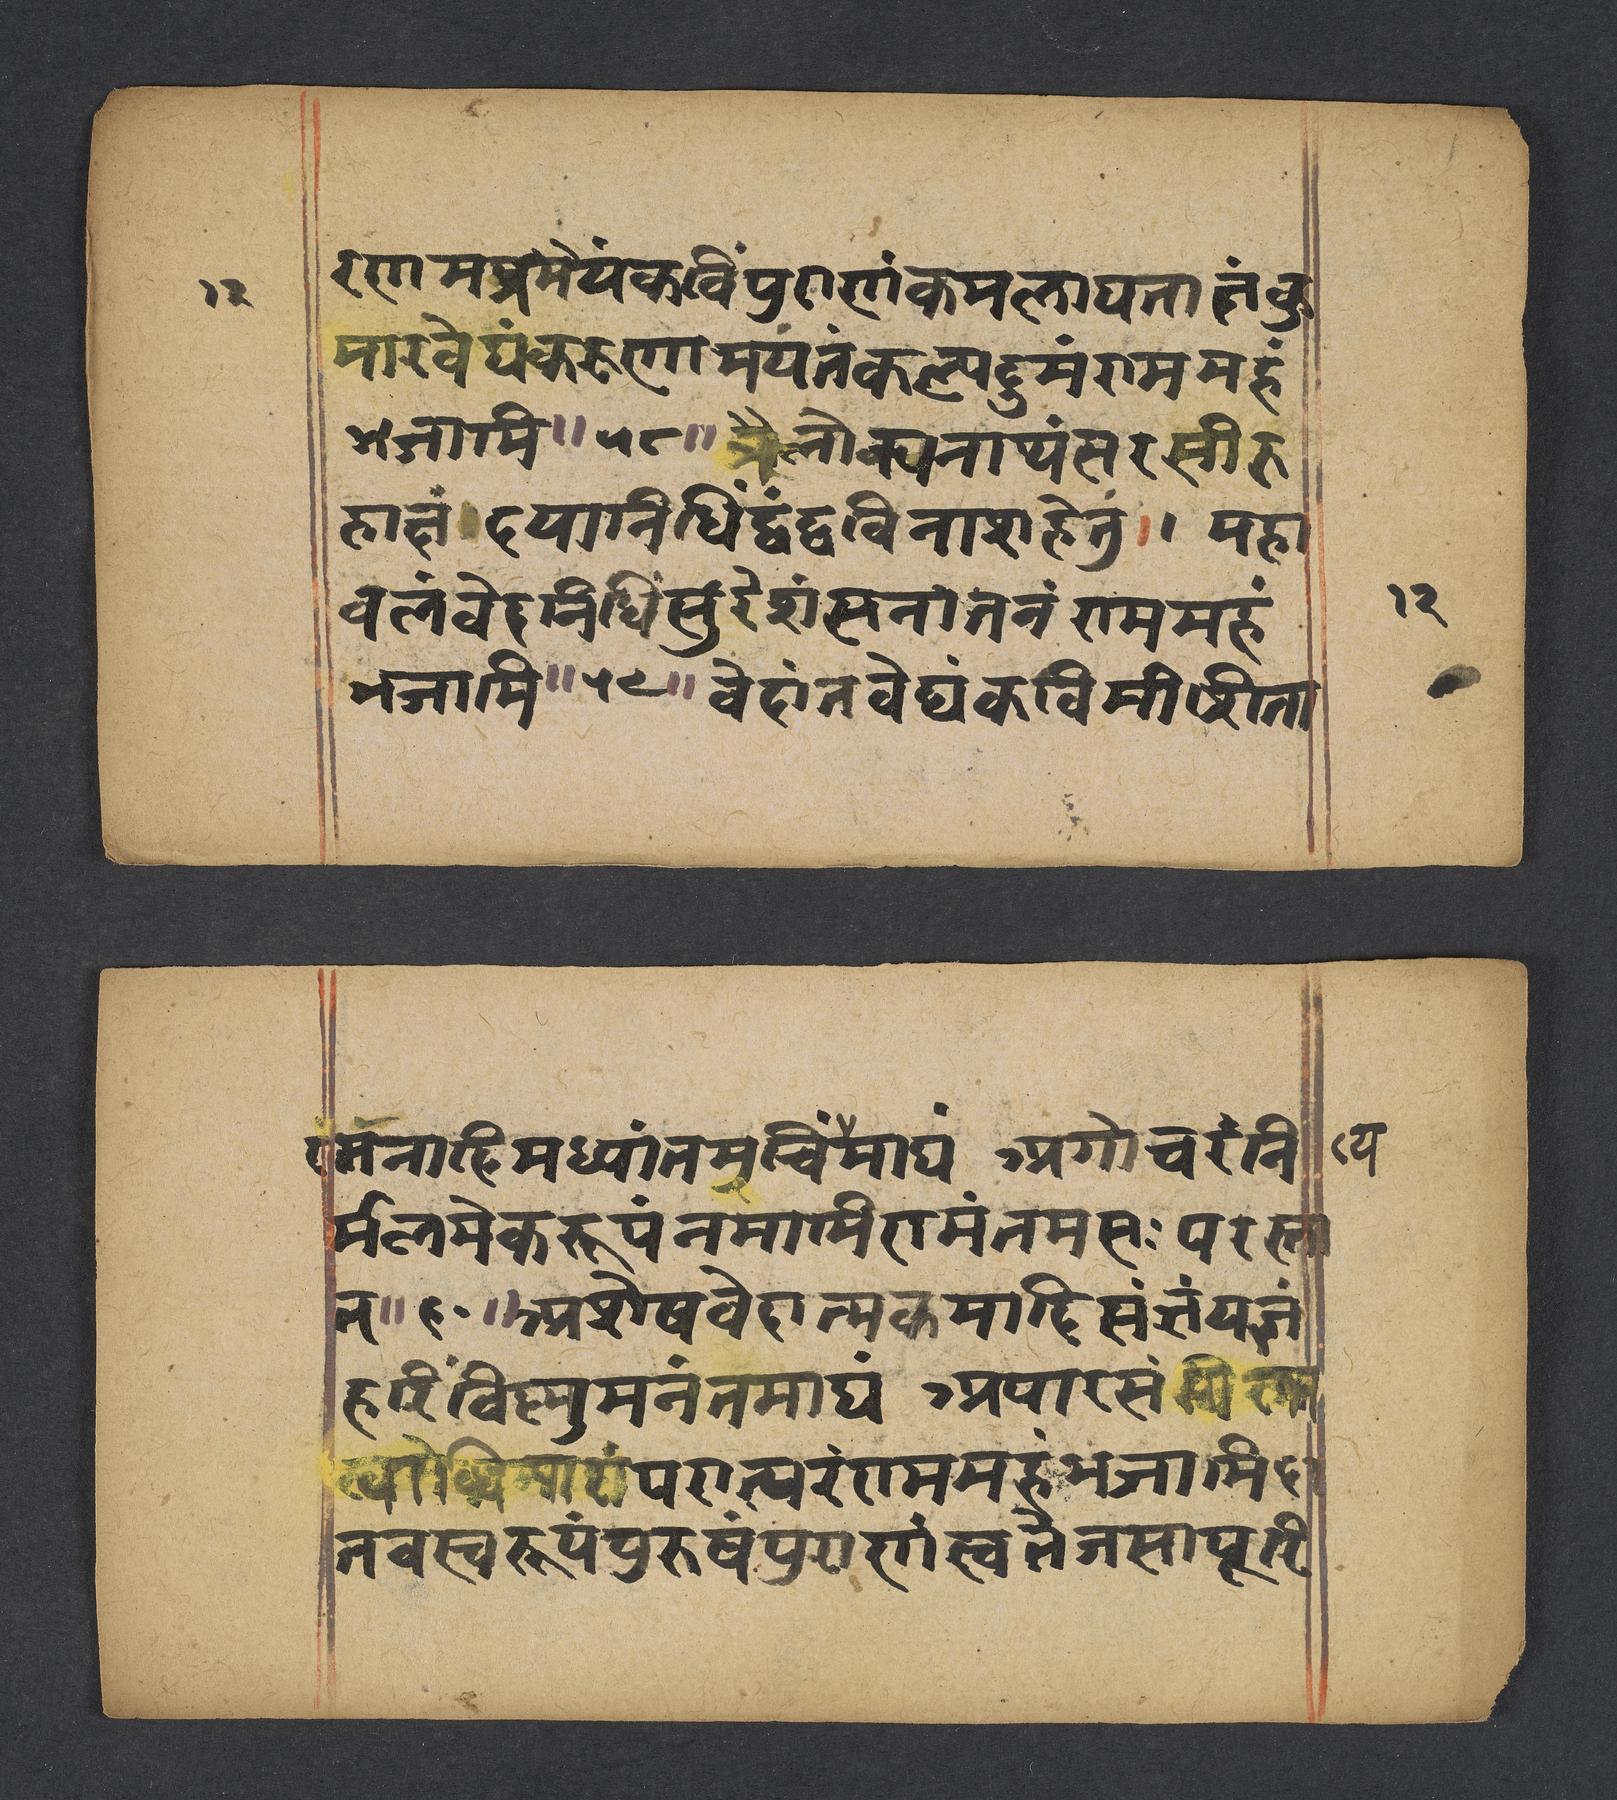 १२
रणामप्रमेयंकविंपुराणंकमलायनात्नंकु
मारवेद्यंकरुणामयंतंकल्पद्रुमंराममहं
भजामि॥५८॥त्रैलोक्यनाथंसरसीरु
हात्नं।दयानिधिंद्वंद्वविनाशहेतुं॥।महा
वलंवेदनिधिंसुरेशंसनातनंराममहं
१२
भजामि॥५९॥वेदांतवेद्यंकविमीशिता
रमनादिमध्यांतमचिंत्यमाद्यं अगोचरंनि
र्मलमेकरूपंनमामिरामंतमसःपरस्ता
त्॥६०॥अशेषवेदात्मकमादिसंज्ञंयज्ञं
हरिंविष्णुमनंतमाद्यं अपारसं
परात्परंराममहंभजामि
त्वस्वरूपंपुरुषंपुराणंस्वतेजसापूरि